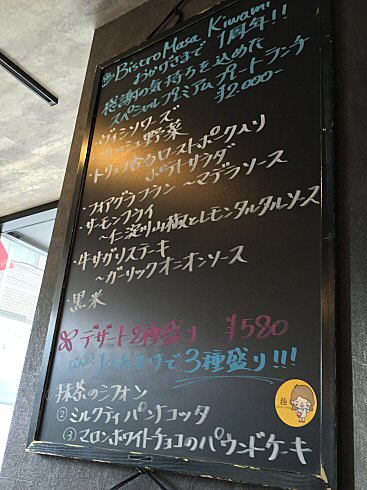 Bistro Masa Kiwami
おかげさまで 1周年!!
感謝の気持ちを込めた
スペシャルプレミアムプレートランチ
¥2000-
・ヴィシソワーズ
・フレッシュ野菜
・トリュフ香るローストポーク入り
ポテトサラダ
・フォアグラフラン 〜マデラソース
・サーモンフライ
〜仁淀川山椒とレモンタルタルソース
・牛サガリステーキ
〜ガーリックオニオンソース
・黒米
デザート2種盛り ¥580
で3種盛り!!!
抹茶のシフォン
② ミルクティパンナコッタ
③ マロンホワイトチョコのパウンドケーキ
極